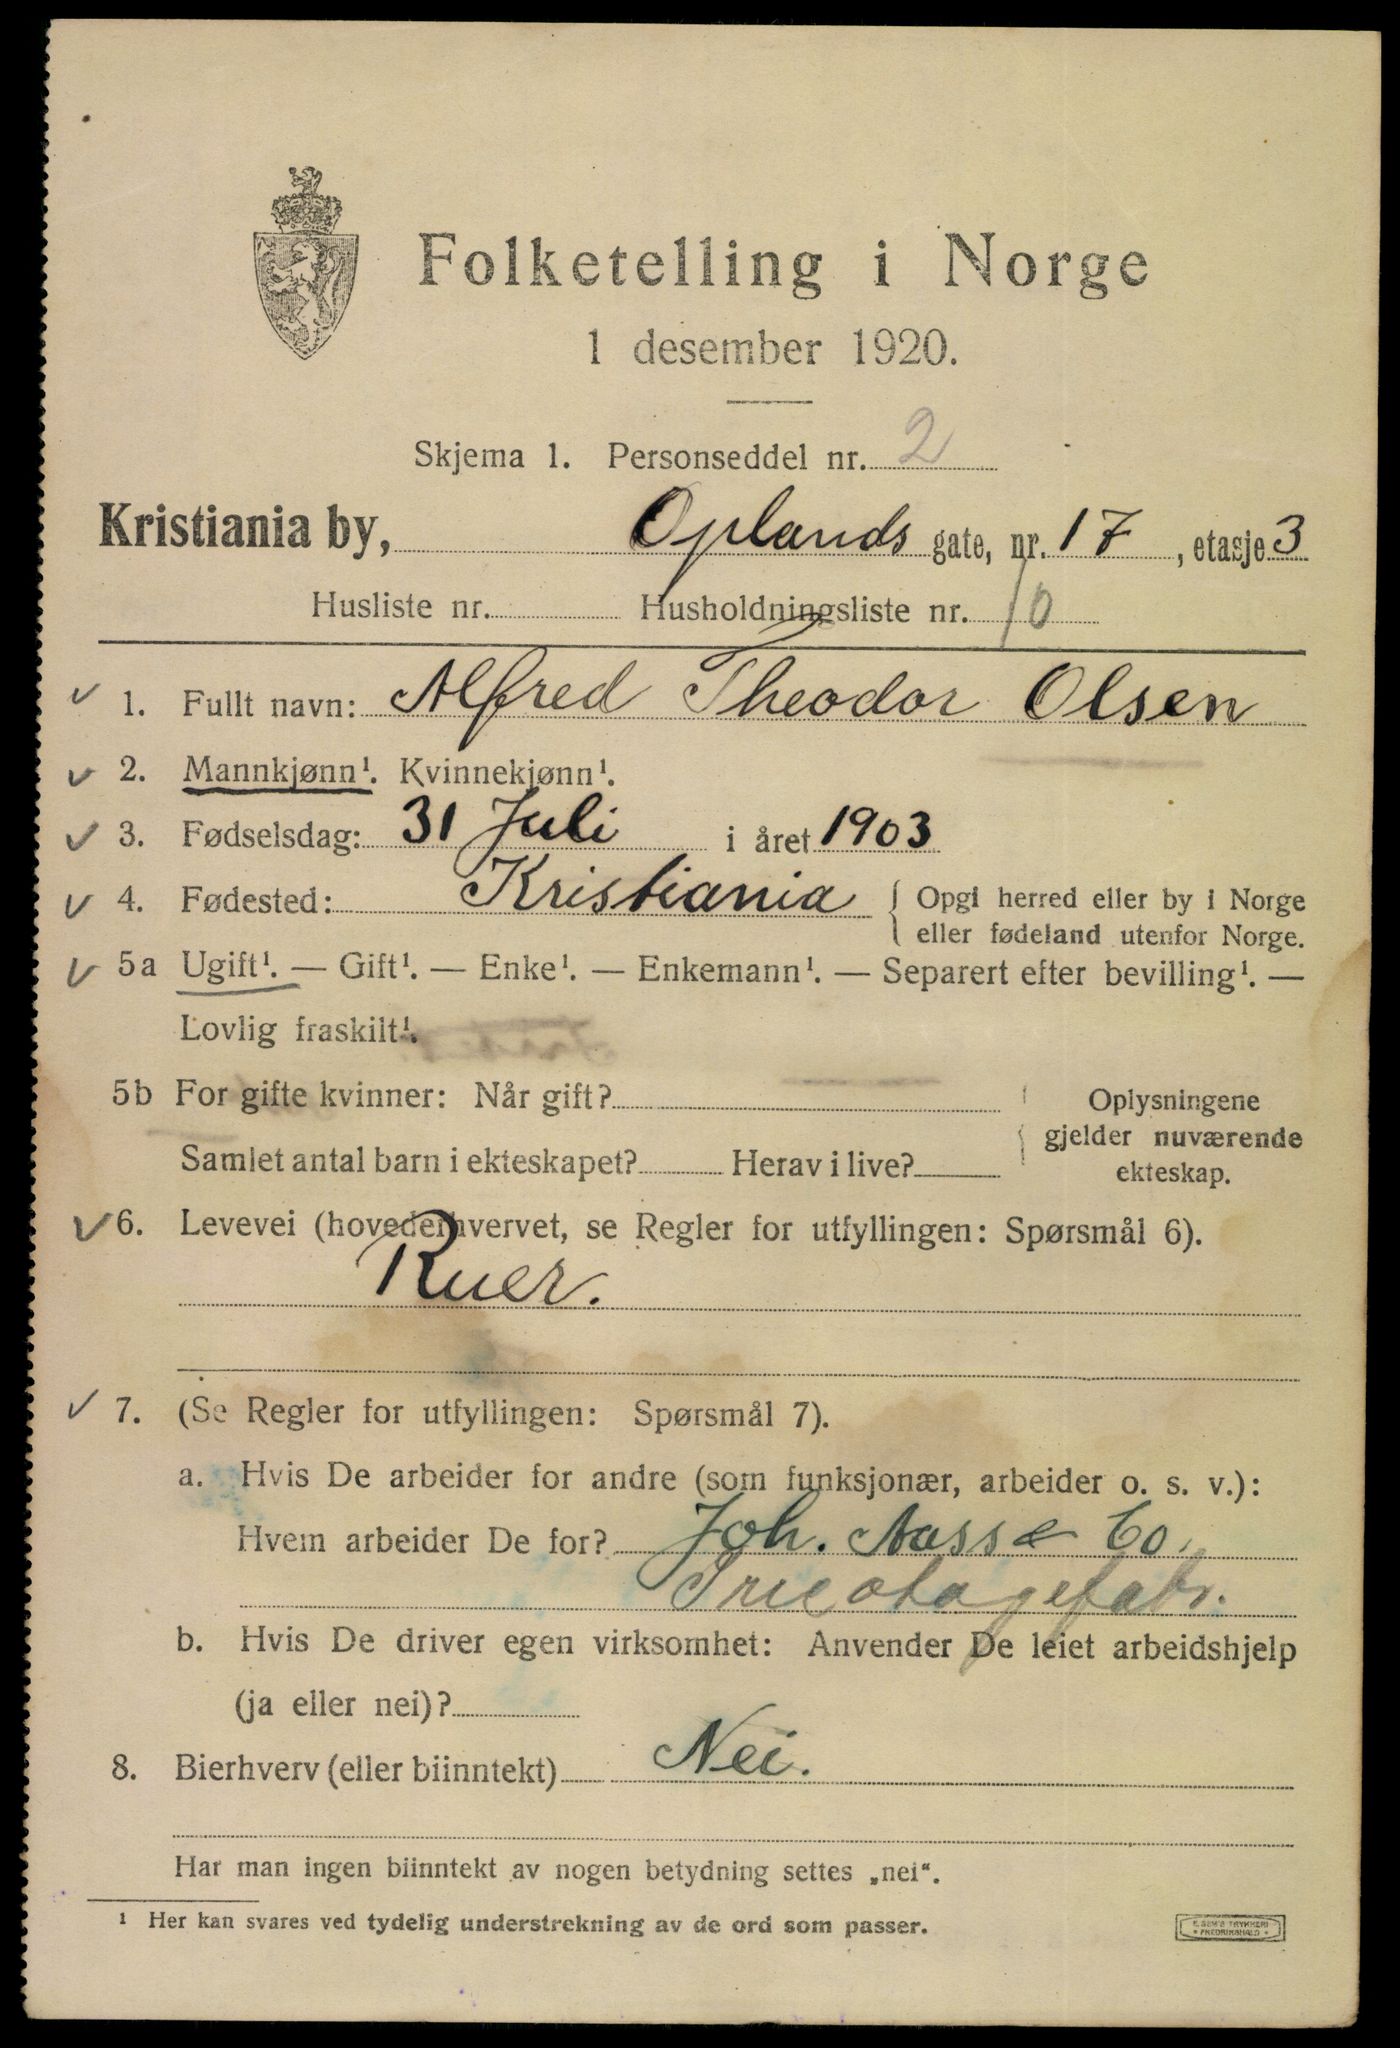 Folketelling i Norge
1 desember 1920.
Skjema 1. Personseddel nr. 2
Kristiania by, Oplands gate, nr. 17, etasje 3
Husliste nr. Husholdningsliste nr. 10
1. Fullt navn: Alfred Theodor Olsen
2. Mannkjønn¹. Kvinnekjønn¹.
3. Fødselsdag: 31 Juli i året 1903
4. Fødested: Kristiania { Opgi herred eller by i Norge
eller fødeland utenfor Norge.
5a Ugift¹. — Gift¹. — Enke¹. — Enkemann¹. — Separert efter bevilling¹. —
Lovlig fraskilt¹.
5b For gifte kvinner: Når gift? Oplysningene
gjelder nuværende
Samlet antal barn i ekteskapet? Herav i live? ekteskap.
6. Levevei (hovederhvervet, se Regler for utfyllingen: Spørsmål 6).
Ruer.
7. (Se Regler for utfyllingen: Spørsmål 7).
a. Hvis De arbeider for andre (som funksjonær, arbeider o. s. v.):
Hvem arbeider De for? Joh. Aass & Co.
Tricotagefabr.
b. Hvis De driver egen virksomhet: Anvender De leiet arbeidshjelp
(ja eller nei)?
8. Bierhverv (eller biinntekt) Nei.
Har man ingen biinntekt av nogen betydning settes „nei“.
¹ Her kan svares ved tydelig understrekning av de ord som passer.
E. SEM'S TRYKKERI
FREDRIKSHALD